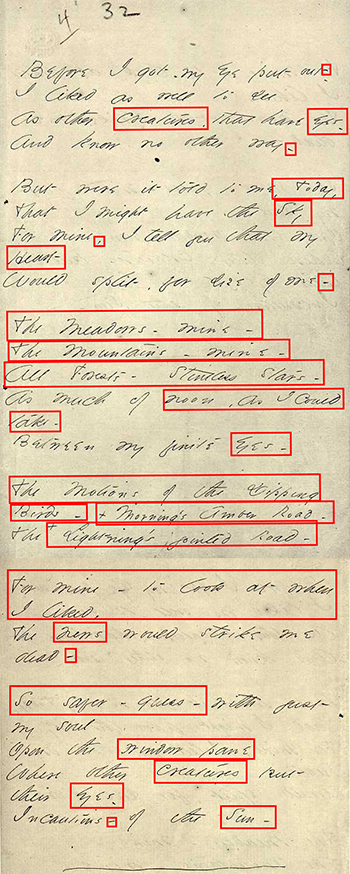 4 32
Before I got my Eye put out -
I liked as well to see
As other Creatures, that have Eyes
And know no other way -
But were it told to me, Today,
That I might have the Sky
For mine, I tell you that my
Heart -
Would split, for size of me -
The Meadows - mine -
The Mountains - mine -
All Forests - Stintless Stars -
As much of noon, as I could
take -
Between my finite Eyes -
The Motions of the Dipping
Birds - + Morning's Amber Road -
The + Lightning's jointed Road -
For mine - to look at when
I liked,
The news would strike me
dead -
So safer - guess - with just
my soul
Opon the window pane
Where other creatures put
their Eyes
Incautious - of the Sun -